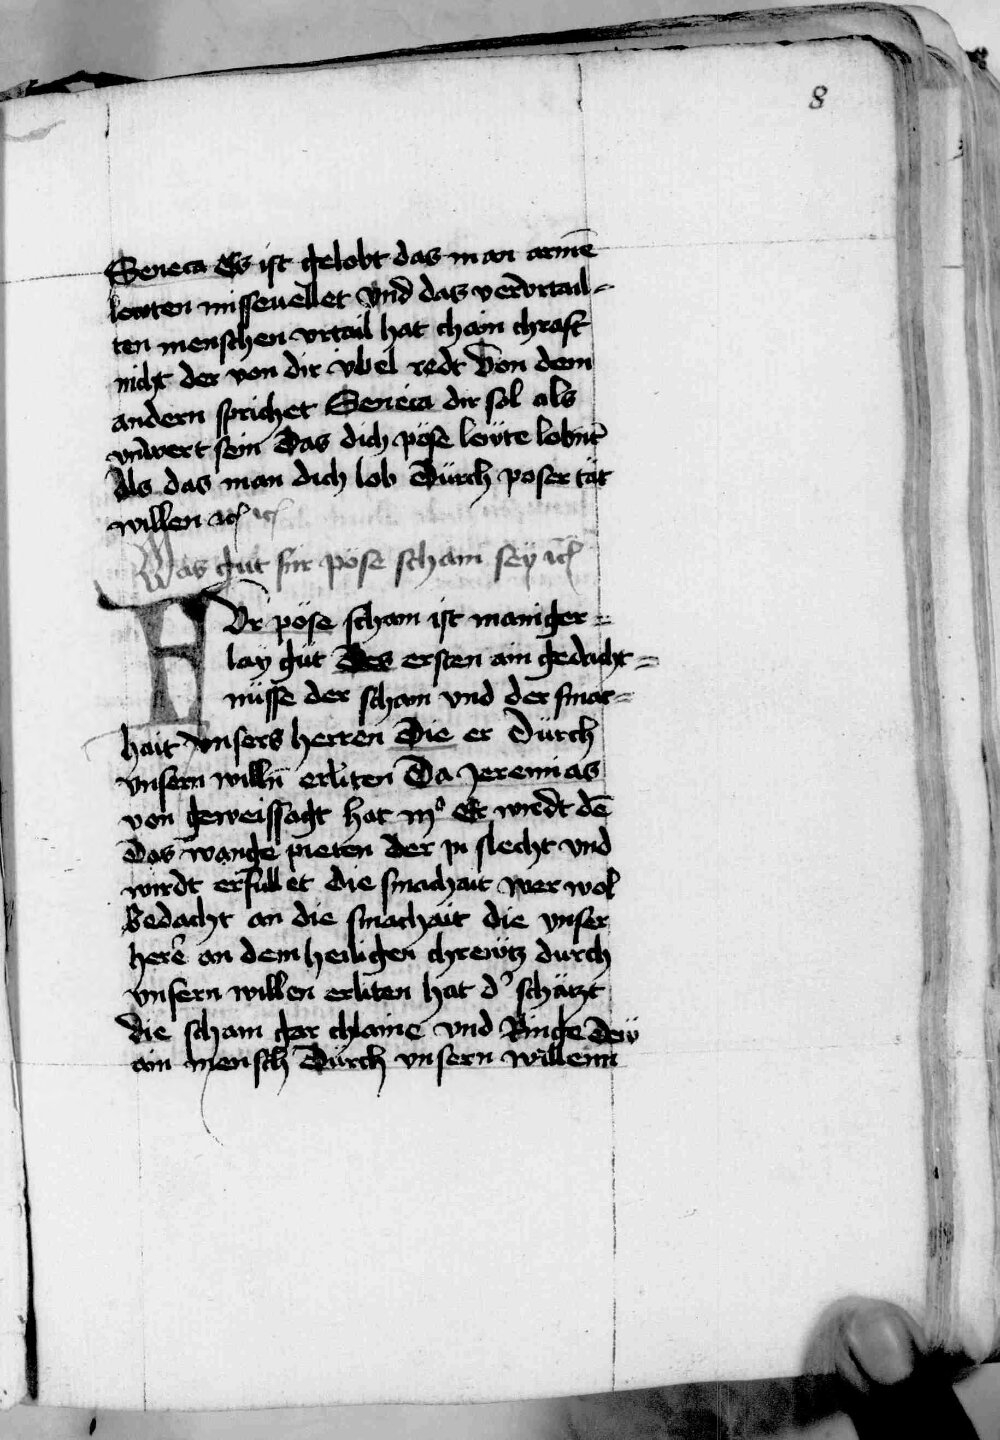 8
Seneca Es ist gelobt das man armē
lewten misseuellet Vnd das vervrtail=
ten menschen vrtail hat chain chraft
nicht der von dir vbel redt Von dem
andern sprichet Seneca dir sol als
vnwert sein Das dich pöse lewte lobnt
Als das man dich lob Dürch poser tät
willen ꝛc̄ ꝛc̄
Was gut für pöse scham sey ꝛc̄
FVr pöse scham ist maniger=
lay güt Des ersten ain gedächt=
nüsse der scham vnd der smac=
hait vnsers herren Die er Dürch
vnsern willn̄ erliten Da Jeremias
von geweissagt hat iijᵒ Er wirdt dē
Das wange pieten der in slecht vnd
wirdt erfullet die smachait wer wol
Bedacht an die smachait die vnser
herr̄ an dem heiligen chrewtz durch
vnsern willen erliten hat d' schätzt
die scham gar chlaine vnd Ringe Dew
ain mensch Dürch vnsern willenn